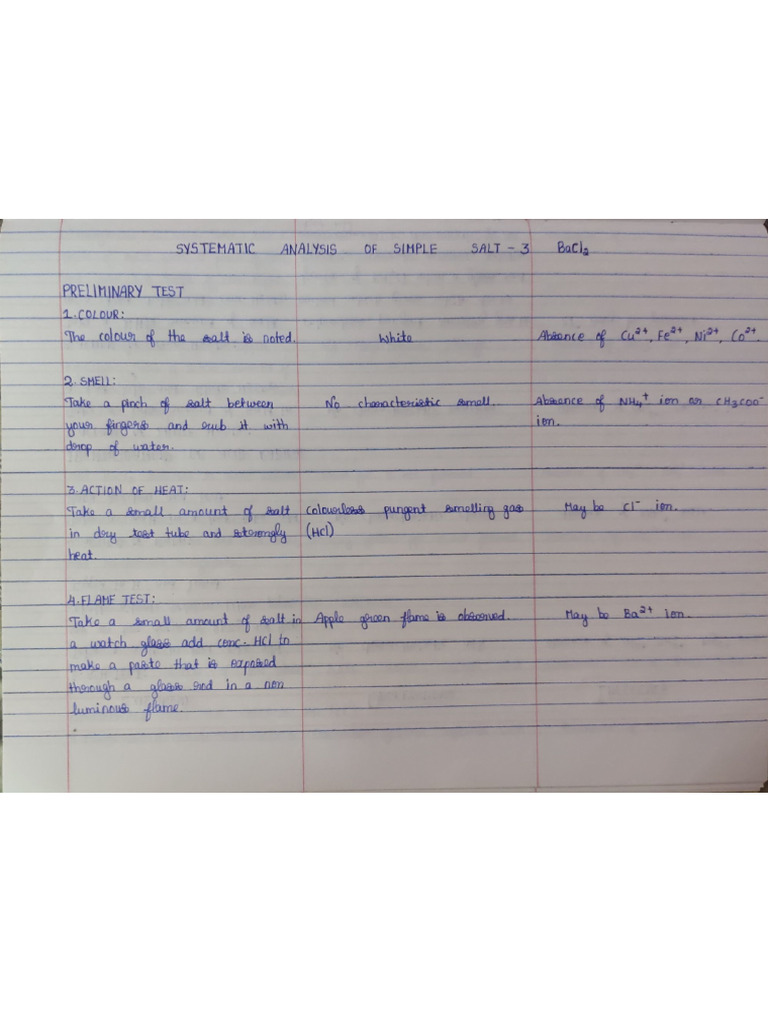 SYSTEMATIC ANALYSIS OF SIMPLE SALT - 3 BaCl₂
PRELIMINARY TEST
1. COLOUR:
The colour of the salt is noted. White Absence of Cu²⁺, Fe²⁺, Ni²⁺, Co²⁺.
2. SMELL:
Take a pinch of salt between No characteristic smell. Absence of NH₄⁺ ion or CH₃COO⁻
your fingers and rub it with ion.
drop of water.
3. ACTION OF HEAT:
Take a small amount of salt Colourless pungent smelling gas May be Cl⁻ ion.
in dry test tube and strongly (HCl)
heat.
4. FLAME TEST:
Take a small amount of salt in Apple green flame is observed. May be Ba²⁺ ion.
a watch glass add conc. HCl to
make a paste that is exposed
through a glass rod in a non
luminous flame.